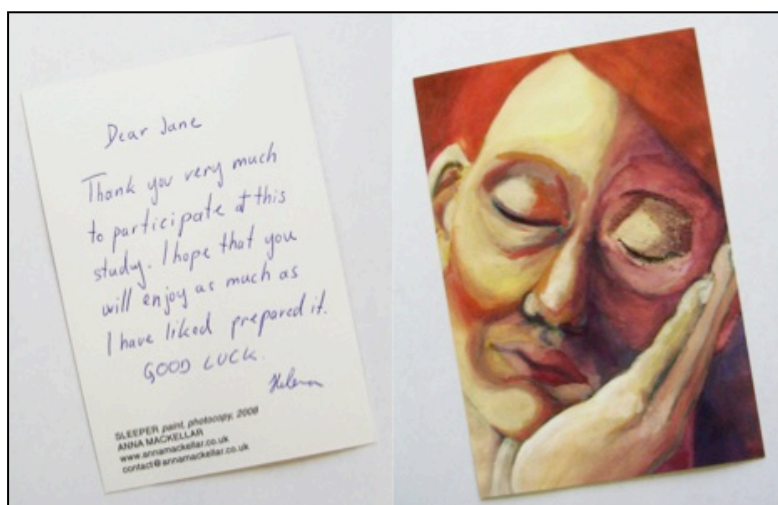 Dear Jane
Thank you very much
to participate at this
study. I hope that you
will enjoy as much as
I have liked prepared it.
GOOD LUCK.
Helena
SLEEPER paint, photocopy, 2008
ANNA MACKELLAR
www.annamackellar.co.uk
contact@annamackellar.co.uk